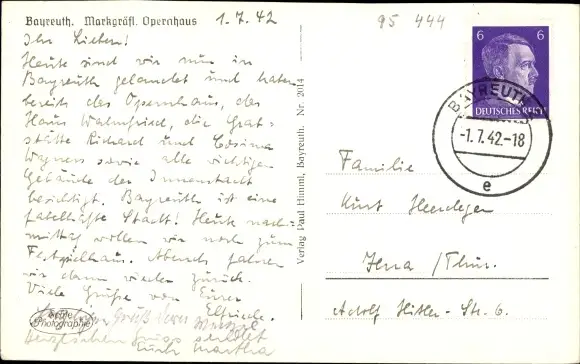 Bayreuth. Markgräfl. Opernhaus 1.7.42
Ihr Lieben!
Heute sind wir nun in
Bayreuth gelandet und haben
bereits das Opernhaus, das
Haus Wahnfried, die Grab-
stätte Richard und Cosima
Wagners sowie alle wichtigen
Gebäude der Innenstadt
besichtigt. Bayreuth ist eine
fabelhafte Stadt! Heute nach-
mittag wollen wir noch zum
Festspielhaus. Abends fahren
wir dann wieder zurück.
Viele Grüße von Eurer
Elfriede.
Gruß
herzlichen Gruß sendet
Euch Martha
Echte
Photographie
Verlag Paul Himml, Bayreuth. Nr. 2014
95 444
6 6
DEUTSCHES REICH
BAYREUTH
-1.7.42-18
e
Familie
Kurt Heerdegen
Jena /Thür.
Adolf Hitler-Str. 6.